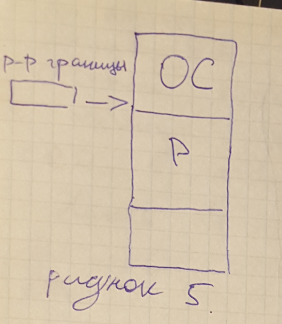 р-р границы
ОС
Р
рисунок 5.